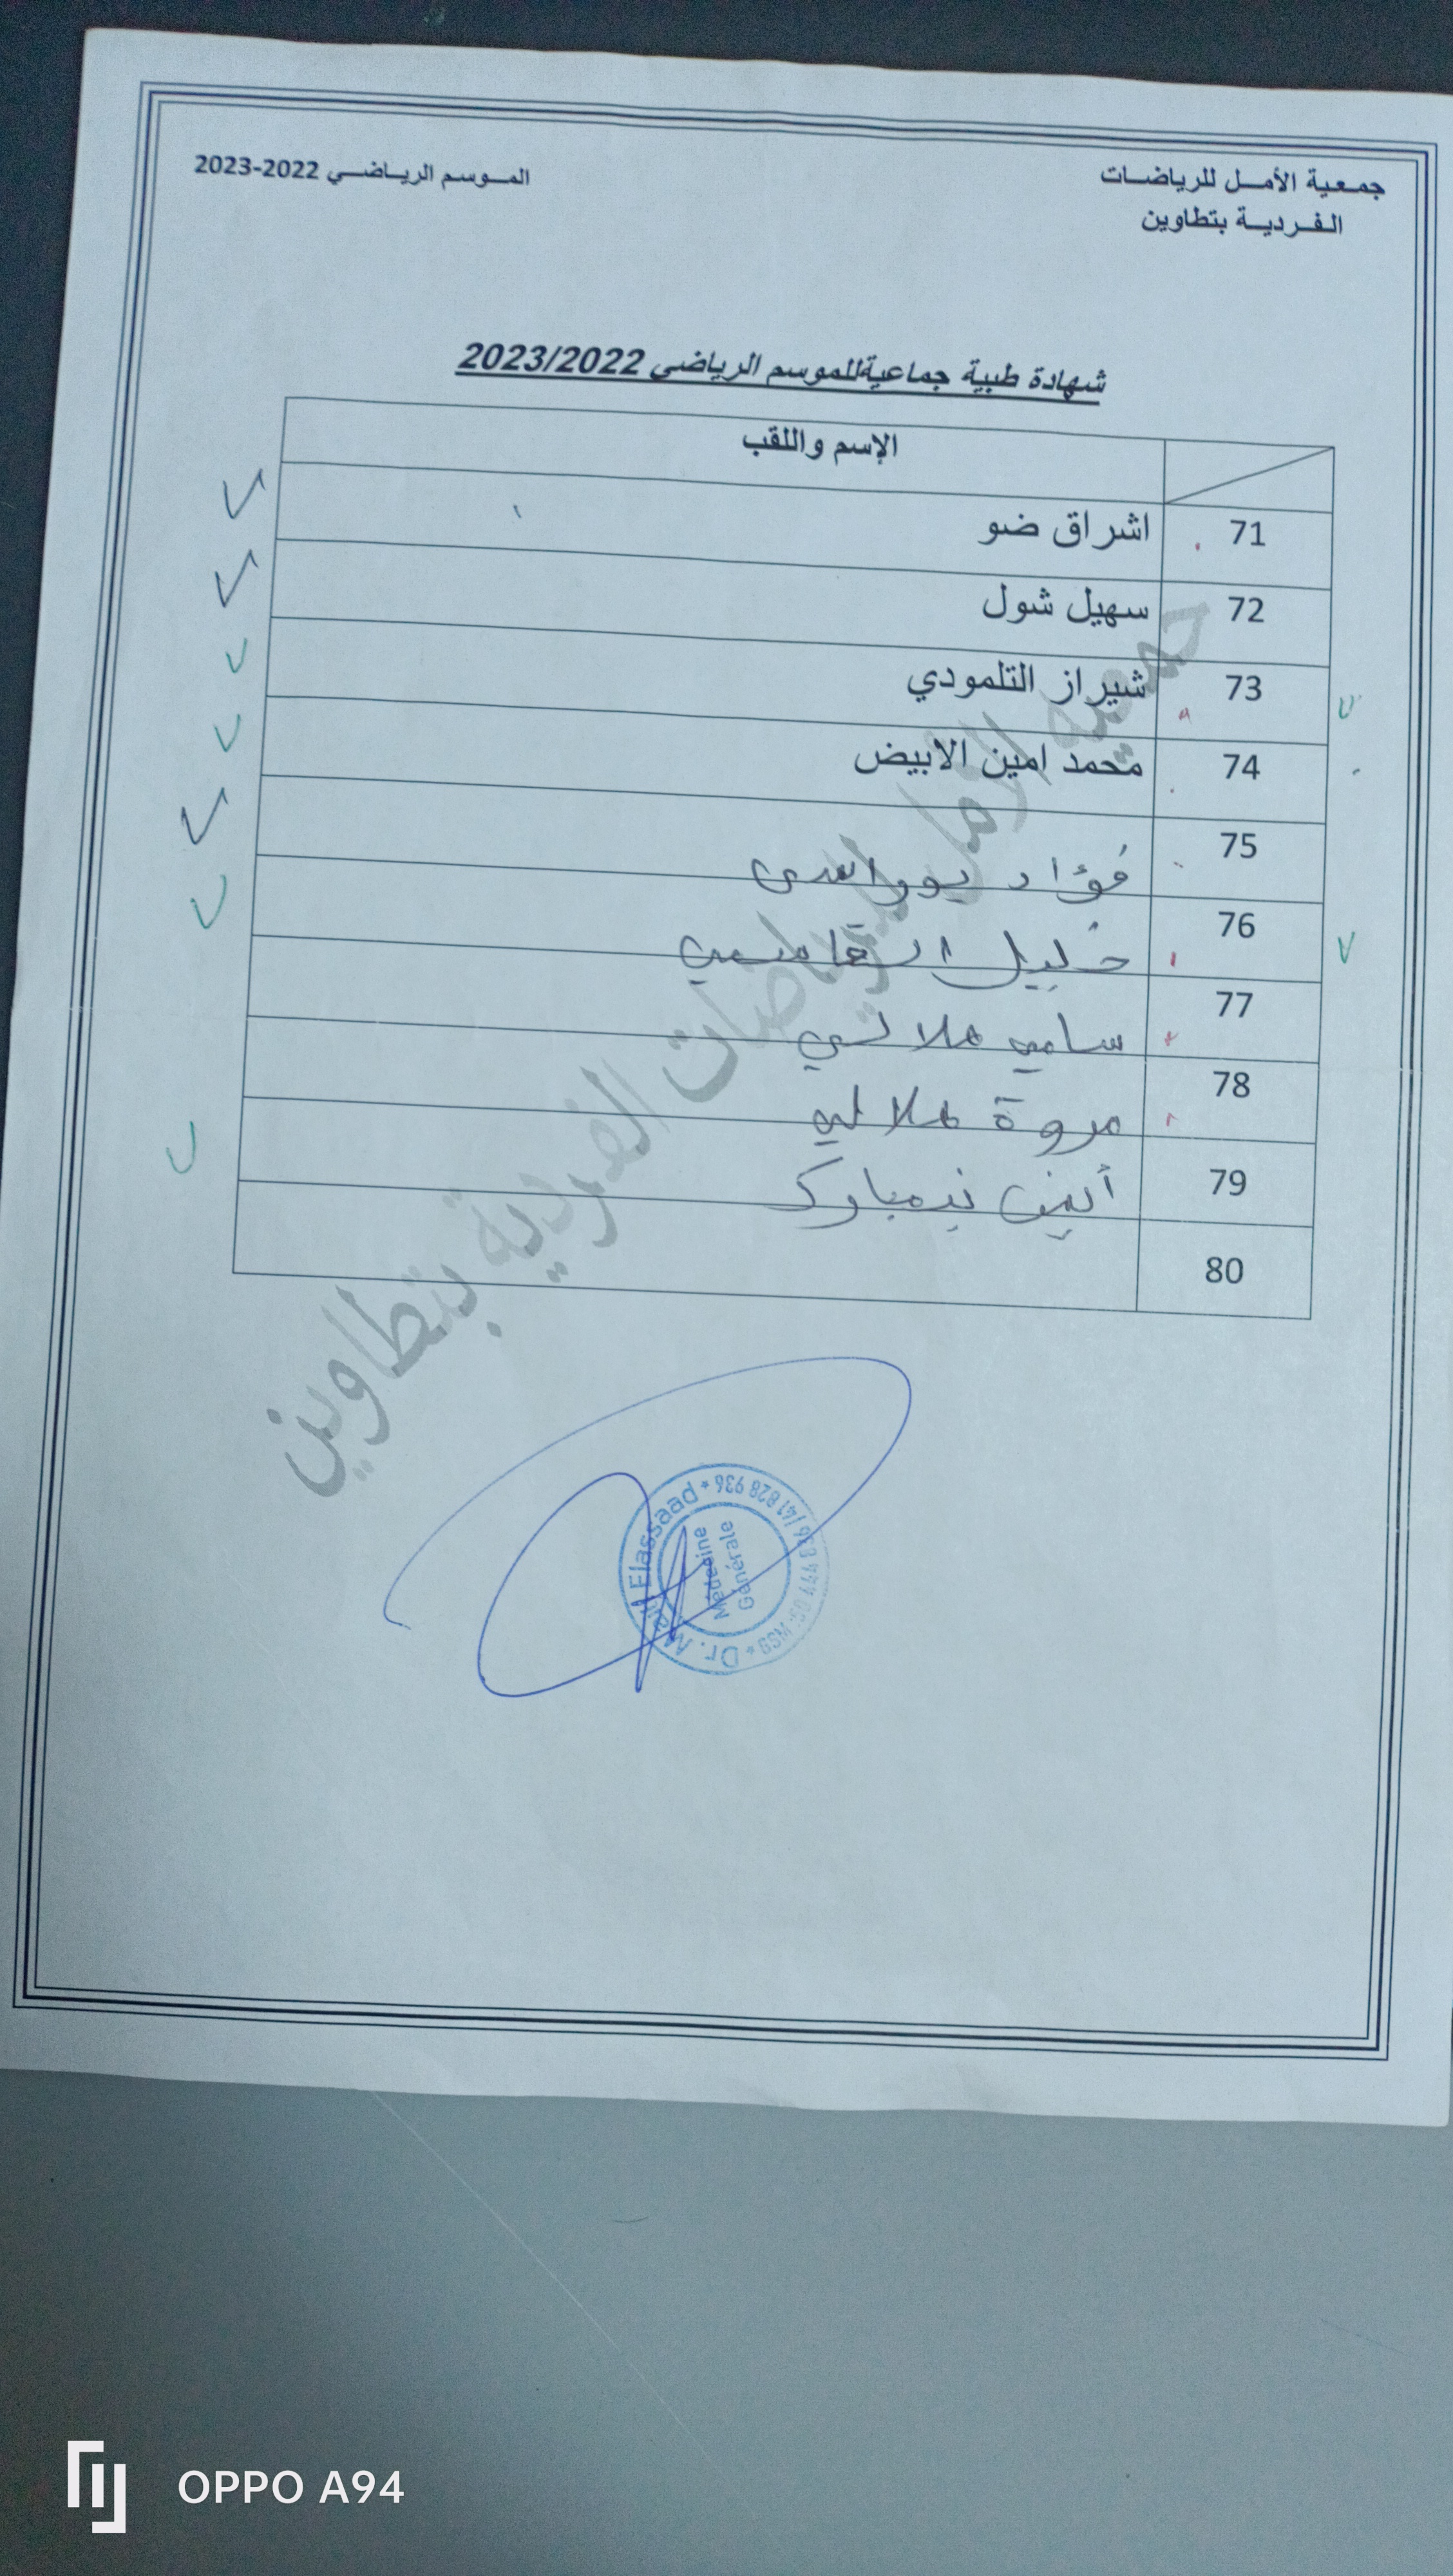 جمعية الأمل للرياضات
الفردية بتطاوين
الموسم الرياضي 2022-2023
شهادة طبية جماعيةللموسم الرياضي 2023/2022
الإسم واللقب
71 اشراق ضو
72 سهيل شول
73 شيراز التلمودي
74 محمد امين الابيض
75 فؤاد
76 خليل القاسمي
77 سامي هلالي
78 مروة هلالي
79 أيمن بنمبارك
80
جمعية الأمل للرياضات الفردية بتطاوين
Elassaad
Médecine
Générale
Dr.
GSM
OPPO A94